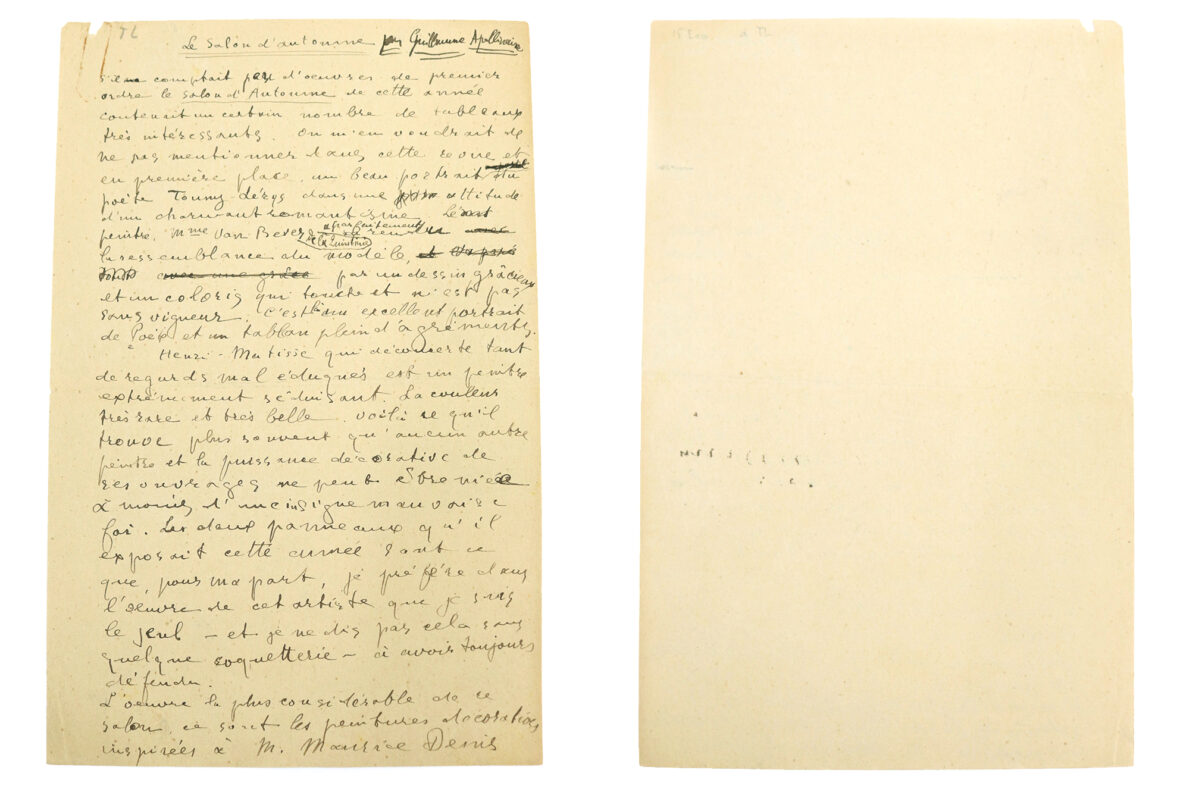 Le Salon d'automne par Guillaume Apollinaire
S'il ne comptait pas d'oeuvres de premier
ordre le Salon d'Automne de cette année
contenait un certain nombre de tableaux
très intéressants. On m'en voudrait de
ne pas mentionner dans cette revue et
en première place, un beau portrait du
poète Tounny-Lérys dans une attitude
d'un charmant romantisme. Le
peintre, Mme Van Bever de la Quintinie a parfaitement su rendre
la ressemblance du modèle, et
avec une grâce par un dessin grâcieux
et un coloris qui touche et n'est pas
sans vigueur. C'est là un excellent portrait
de Poète et un tableau plein d'agréments.
Henri-Matisse qui déconcerte tant
de regards mal éduqués est un peintre
extrêmement séduisant. La couleur
très rare et très belle. voilà ce qu'il
trouve plus souvent qu'aucun autre
peintre et la puissance décorative de
ses ouvrages ne peut être niée
à moins d'une insigne mauvaise
foi. Les deux panneaux qu'il
exposait cette année sont ce
que, pour ma part, je préfère dans
l'oeuvre de cet artiste que je suis
le seul — et je ne dis pas cela sans
quelque coquetterie — à avoir toujours
défendu.
L'oeuvre la plus considérable de ce
salon, ce sont les peintures décoratives
inspirées à M. Maurice Denis